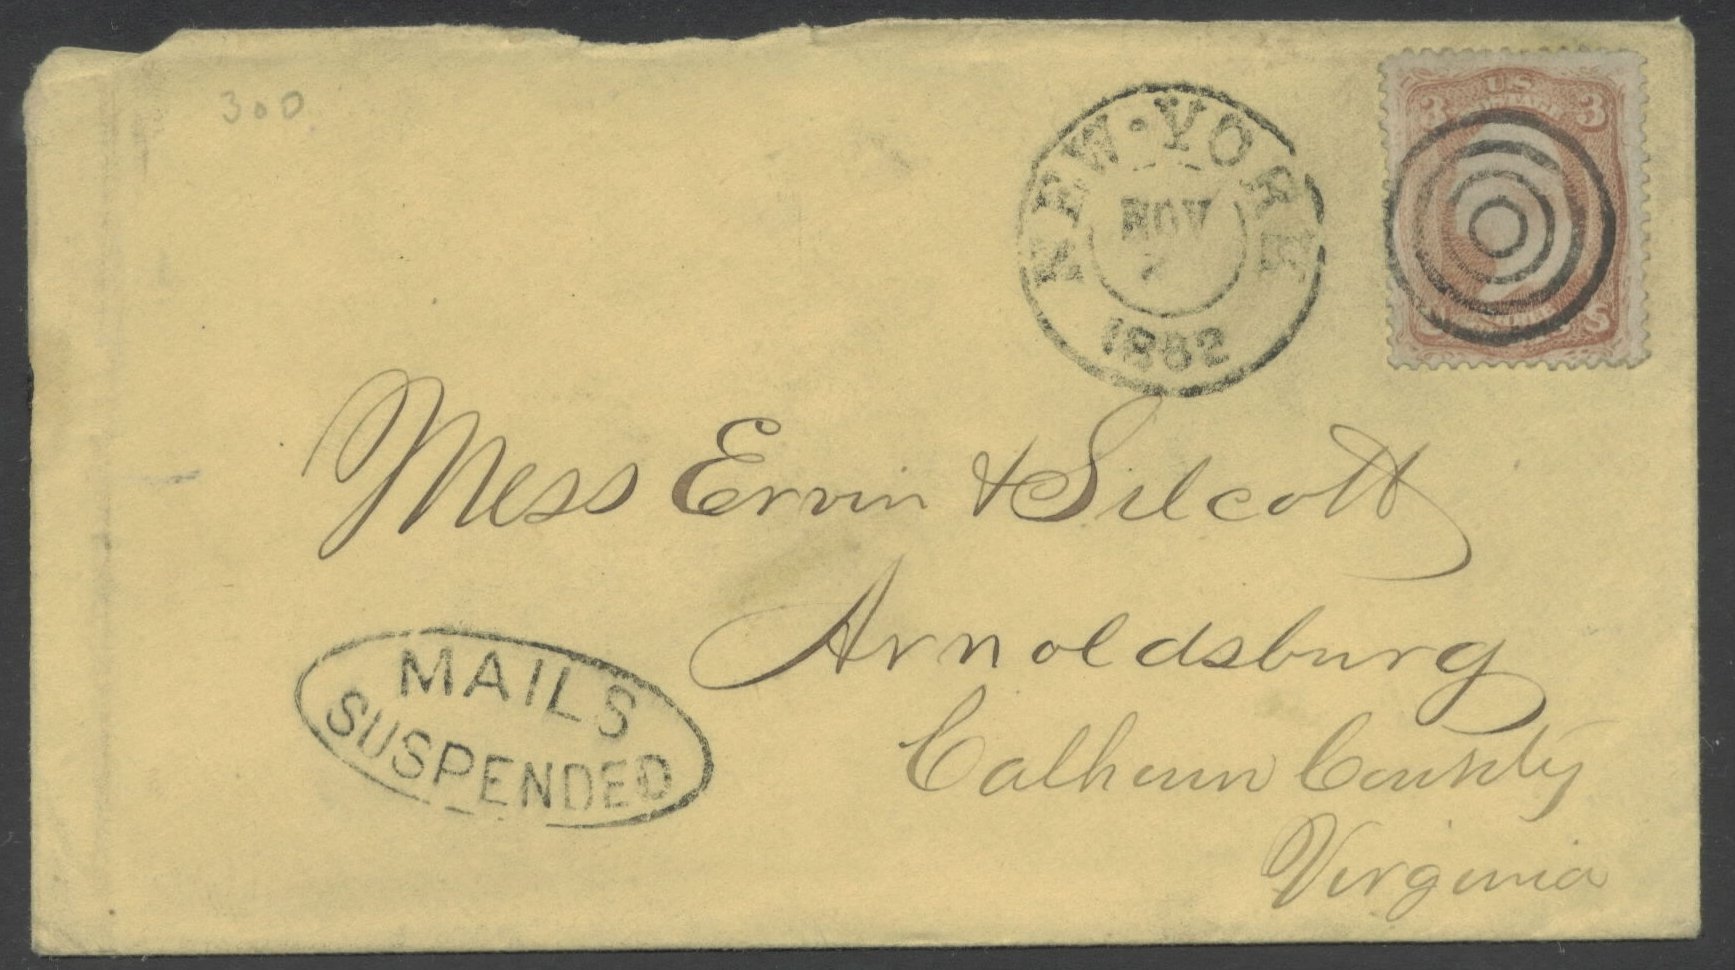 300
NEW·YORK
NOV
1862
U.S.
3 3
Mess Ervin & Silcott
Arnoldsburg
Calhoun County
Virginia
MAILS
SUSPENDED